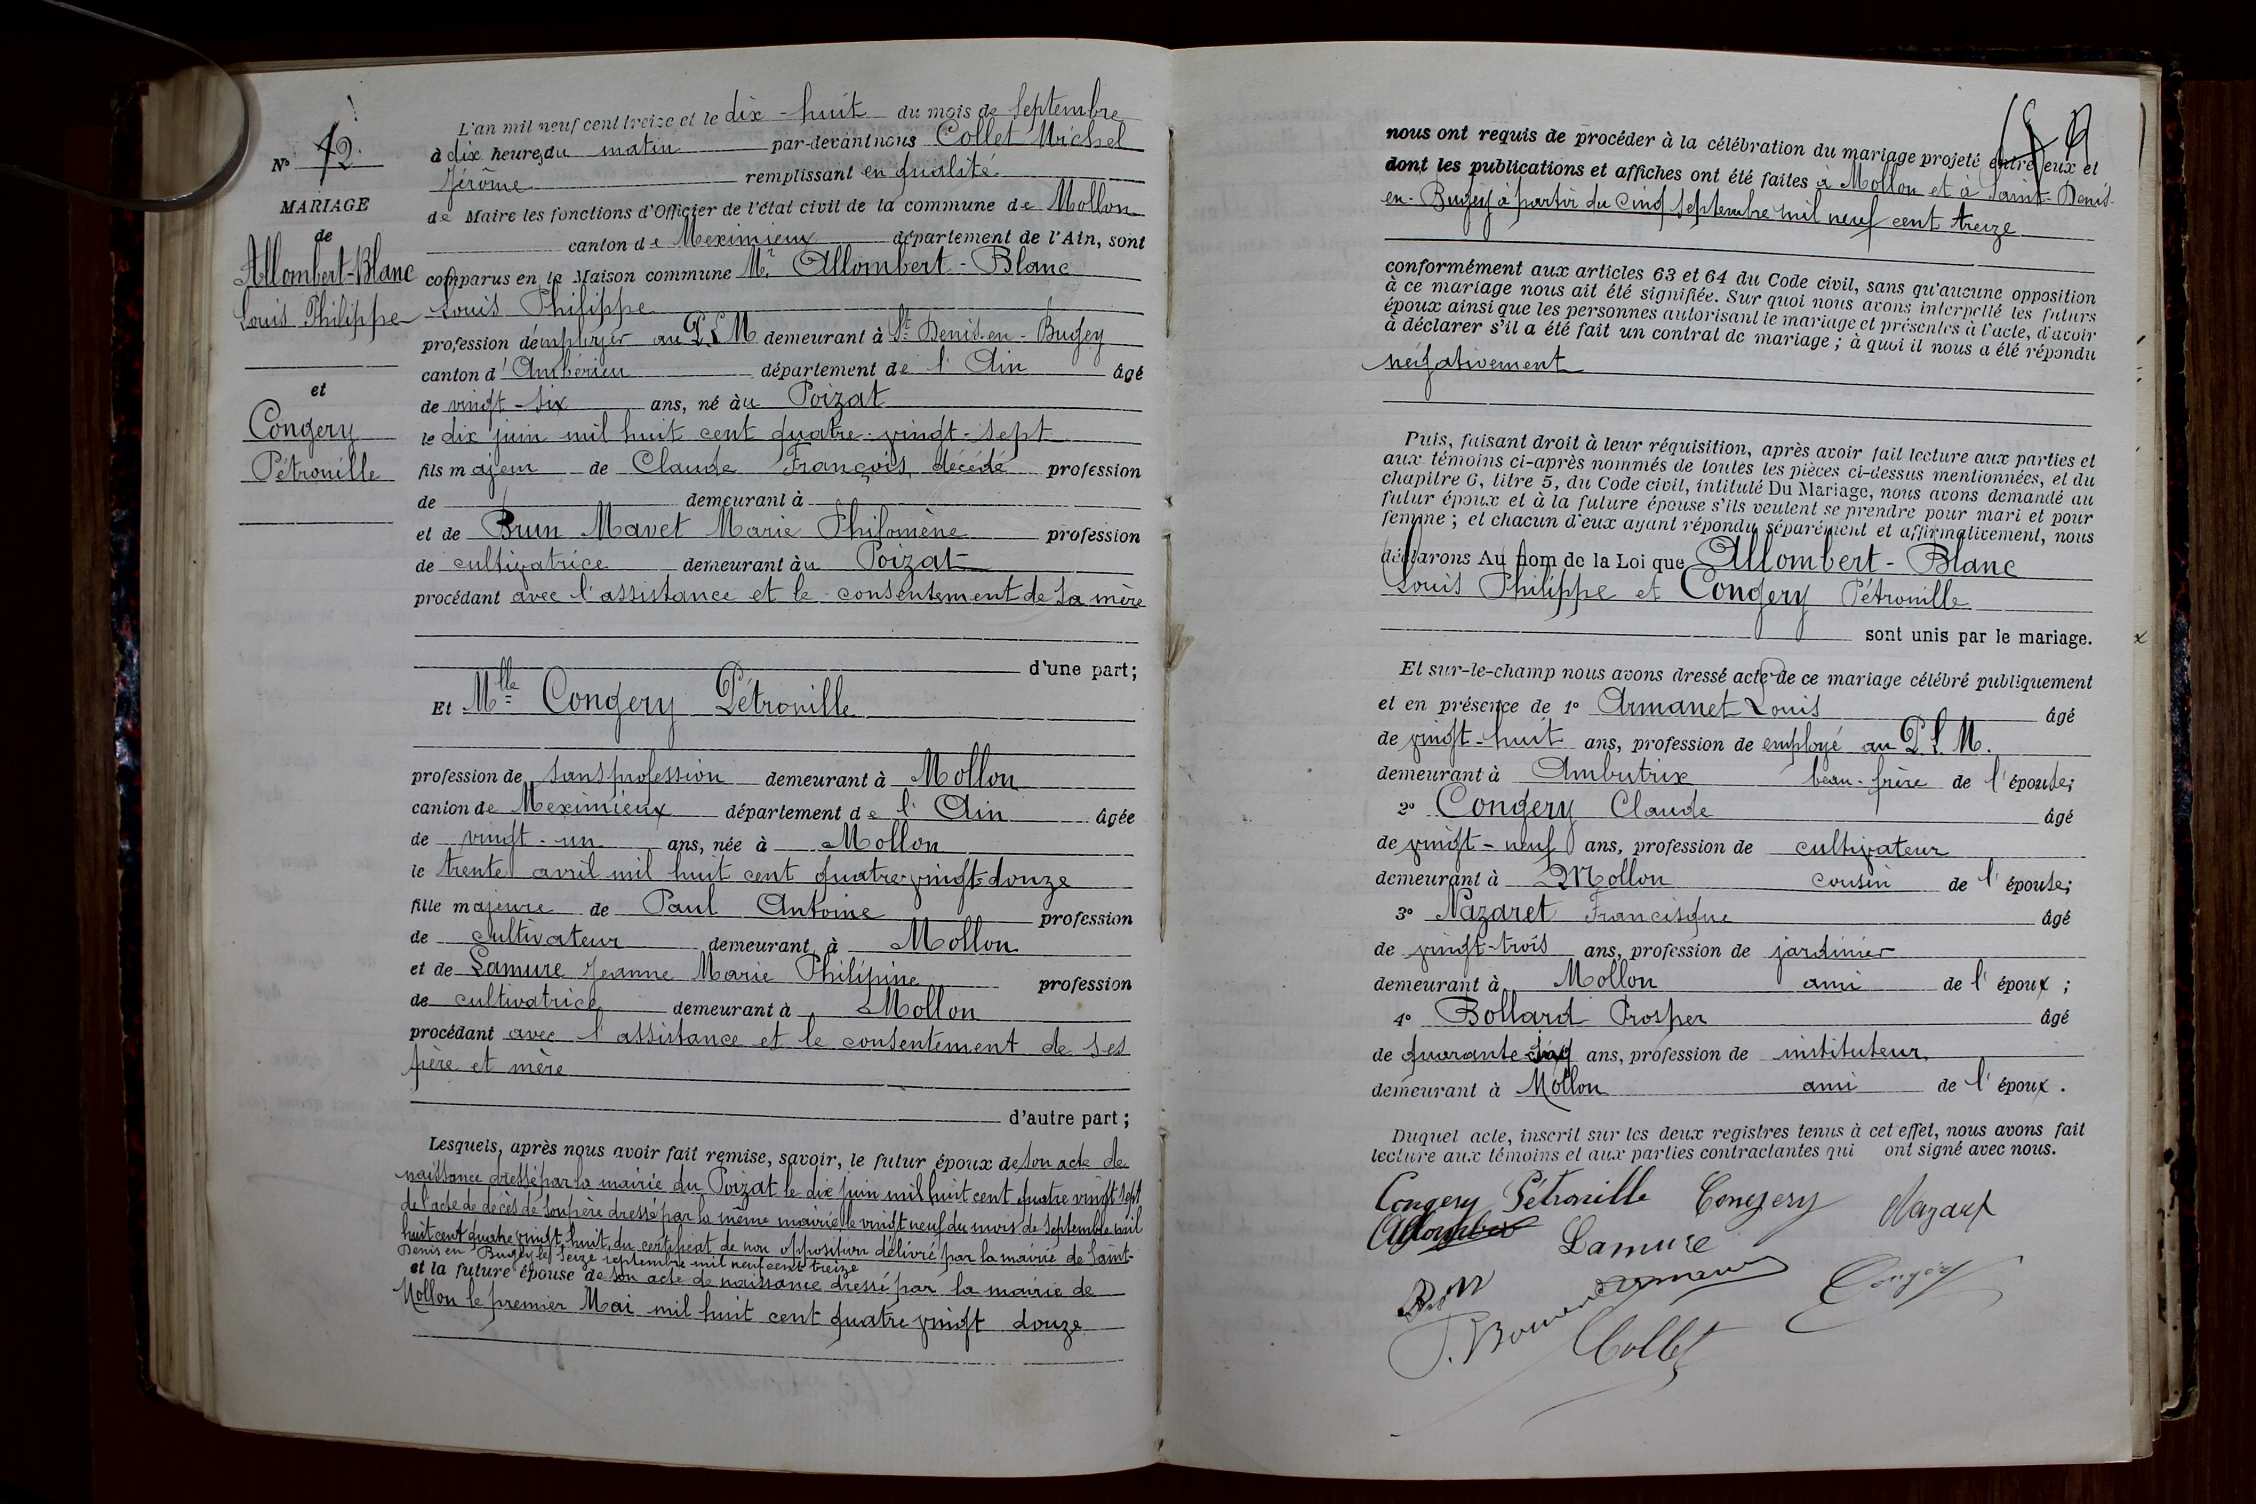 N° 12
MARIAGE
de
Allombert-Blanc
Louis Philippe
et
Congery
Pétronille
L'an mil neuf cent treize et le dix-huit du mois de Septembre
à dix heures du matin par-devant nous Collet Michel
Jérôme remplissant en qualité
de Maire les fonctions d'Officier de l'état civil de la commune de Mollon
canton de Meximieux département de l'Ain, sont
comparus en la Maison commune Mr. Allombert-Blanc
Louis Philippe
profession d'employer au P.L.M demeurant à St Denis-en-Bugey
canton d'Ambérieu département de l'Ain âgé
de vingt-six ans, né au Poizat
le dix juin mil huit cent quatre-vingt-sept
fils majeur de Claude François décédé profession
de demeurant à
et de Brun Mavet Marie Philomène profession
de cultivatrice demeurant au Poizat
procédant avec l'assistance et le consentement de sa mère
d'une part;
Et Mlle Congery Pétronille
profession de sans profession demeurant à Mollon
canton de Meximieux département de l'Ain âgée
de vingt-un ans, née à Mollon
le trente avril mil huit cent quatre-vingt-douze
fille majeure de Paul Antoine profession
de cultivateur demeurant à Mollon
et de Lamure Jeanne Marie Philipine profession
de cultivatrice demeurant à Mollon
procédant avec l'assistance et le consentement de ses
père et mère
d'autre part;
Lesquels, après nous avoir fait remise, savoir, le futur époux de son acte de
naissance dressé par la mairie du Poizat le dix juin mil huit cent quatre vingt sept
de l'acte de décès de son père dressé par la même mairie le vingt neuf du mois de septembre mil
huit cent quatre vingt huit, du certificat de non opposition délivré par la mairie de Saint-
Denis en Bugey le seize septembre mil neuf cent treize
et la future épouse de son acte de naissance dressé par la mairie de
Mollon le premier Mai mil huit cent quatre vingt douze
nous ont requis de procéder à la célébration du mariage projeté entre eux et
dont les publications et affiches ont été faites à Mollon et à Saint-Denis-
en-Bugey à partir du cinq septembre mil neuf cent treize
conformément aux articles 63 et 64 du Code civil, sans qu'aucune opposition
à ce mariage nous ait été signifiée. Sur quoi nous avons interpellé les futurs
époux ainsi que les personnes autorisant le mariage et présentes à l'acte, d'avoir
à déclarer s'il a été fait un contrat de mariage; à quoi il nous a été répondu
négativement
Puis, faisant droit à leur réquisition, après avoir fait lecture aux parties et
aux témoins ci-après nommés de toutes les pièces ci-dessus mentionnées, et du
chapitre 6, titre 5, du Code civil, intitulé Du Mariage, nous avons demandé au
futur époux et à la future épouse s'ils veulent se prendre pour mari et pour
femme; et chacun d'eux ayant répondu séparément et affirmativement, nous
déclarons Au nom de la Loi que Allombert-Blanc
Louis Philippe et Congery Pétronille
sont unis par le mariage.
Et sur-le-champ nous avons dressé acte de ce mariage célébré publiquement
et en présence de 1° Armanet Louis âgé
de vingt-huit ans, profession de employé au P.L.M.
demeurant à Ambutrix beau-frère de l'épouse;
2° Congery Claude âgé
de vingt-neuf ans, profession de cultivateur
demeurant à Mollon cousin de l'épouse;
3° Nazaret Francisque âgé
de vingt-trois ans, profession de jardinier
demeurant à Mollon ami de l'époux;
4° Bollard Prosper âgé
de quarante-cinq ans, profession de instituteur
demeurant à Mollon ami de l'époux.
Duquel acte, inscrit sur les deux registres tenus à cet effet, nous avons fait
lecture aux témoins et aux parties contractantes qui ont signé avec nous.
Congery Pétronille Congery Nazaret
Allombert
Lamure
Armanet Congery
Collet